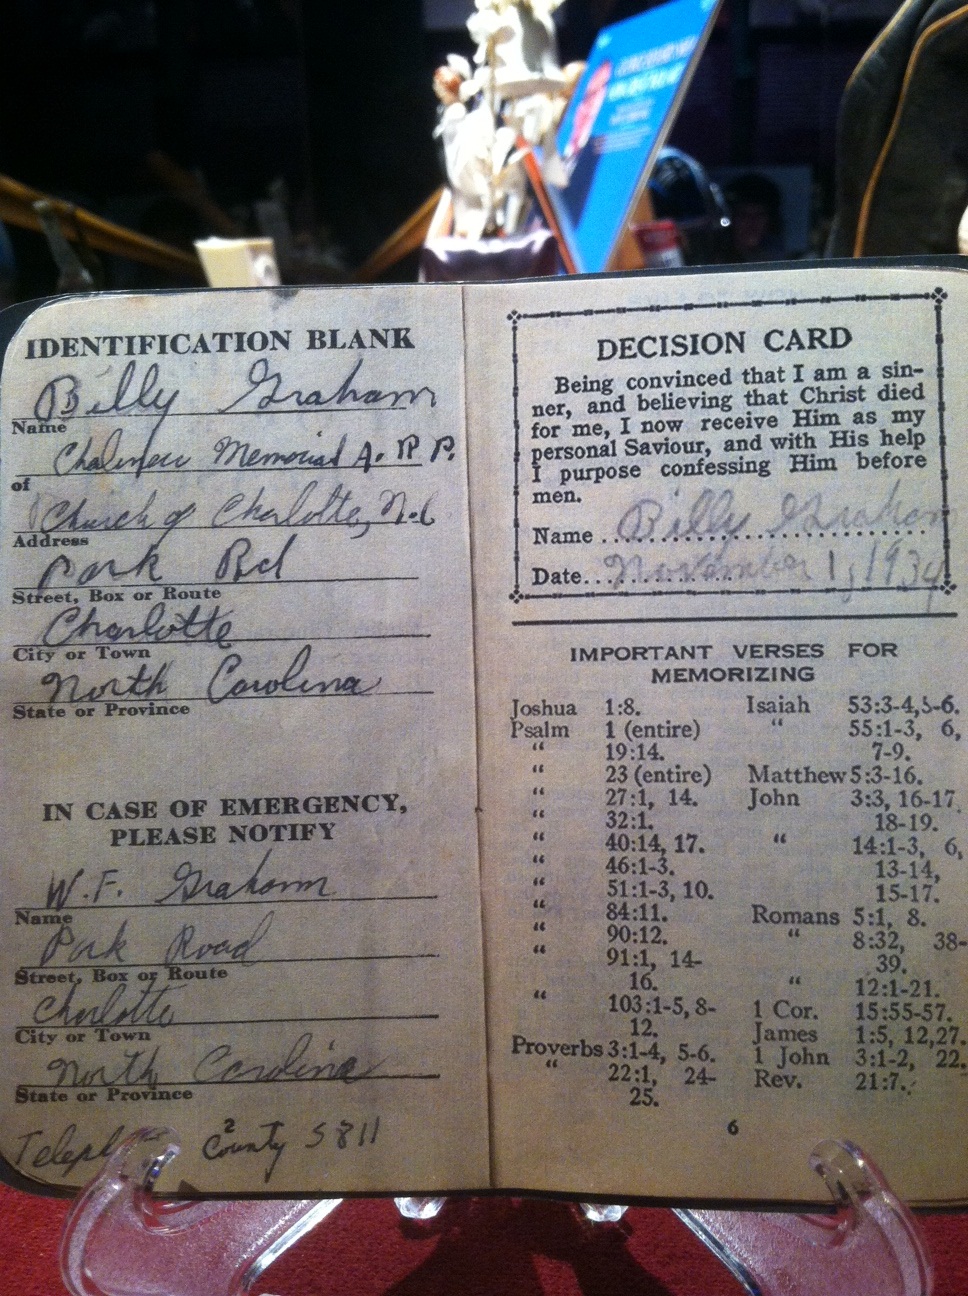 IDENTIFICATION BLANK
Billy Graham
Name
Chalmers Memorial A. R. P.
of
Church of Charlotte, N.C
Address
Park Rd
Street, Box or Route
Charlotte
City or Town
North Carolina
State or Province
IN CASE OF EMERGENCY,
PLEASE NOTIFY
W. F. Graham
Name
Park Road
Street, Box or Route
Charlotte
City or Town
North Carolina
State or Province
2
County 5811
DECISION CARD
Being convinced that I am a sin-
ner, and believing that Christ died
for me, I now receive Him as my
personal Saviour, and with His help
I purpose confessing Him before
men.
Name .. Billy Graham
Date... November 1, 1934
IMPORTANT VERSES FOR
MEMORIZING
Joshua 1:8.
Psalm 1 (entire)
“ 19:14.
“ 23 (entire)
“ 27:1, 14.
“ 32:1.
“ 40:14, 17.
“ 46:1-3.
“ 51:1-3, 10.
“ 84:11.
“ 90:12.
“ 91:1, 14-
16.
“ 103:1-5, 8-
12.
Proverbs 3:1-4, 5-6.
“ 22:1, 24-
25.
Isaiah 53:3-4,5-6.
“ 55:1-3, 6,
7-9.
Matthew 5:3-16.
John 3:3, 16-17,
18-19.
“ 14:1-3, 6,
13-14,
15-17.
Romans 5:1, 8.
“ 8:32, 38-
39.
“ 12:1-21.
1 Cor. 15:55-57.
James 1:5, 12,27.
1 John 3:1-2, 22.
Rev. 21:7.
6